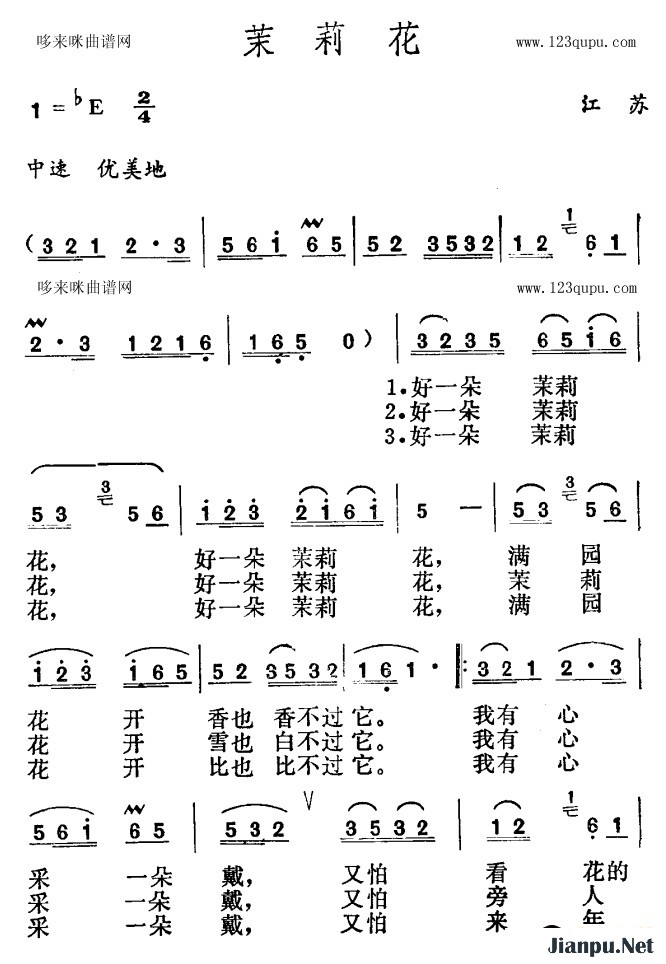 哆来咪曲谱网 茉莉花 www.123qupu.com
1=♭E 2/4 江苏
中速 优美地
(321 2·3 | 561 65 | 52 3532 | 12 1 61 |
哆来咪曲谱网 www.123qupu.com
2·3 1216 | 165 0) | 3235 6516 |
1.好一朵 茉莉
2.好一朵 茉莉
3.好一朵 茉莉
53 3 56 | 123 2161 | 5 — | 53 3 56 |
花, 好一朵 茉莉 花, 满园
花, 好一朵 茉莉 花, 茉莉
花, 好一朵 茉莉 花, 满园
123 165 | 52 3532 | 161· |: 321 2·3 |
花 开 香也 香不过它。 我有 心
花 开 雪也 白不过它。 我有 心
花 开 比也 比不过它。 我有 心
561 65 | 532 532 V 3532 | 12 1 61 |
采 一朵 戴, 又怕 看 花的
采 一朵 戴, 又怕 旁 人
采 一朵 戴, 又怕 来 年
Jianpu.Net